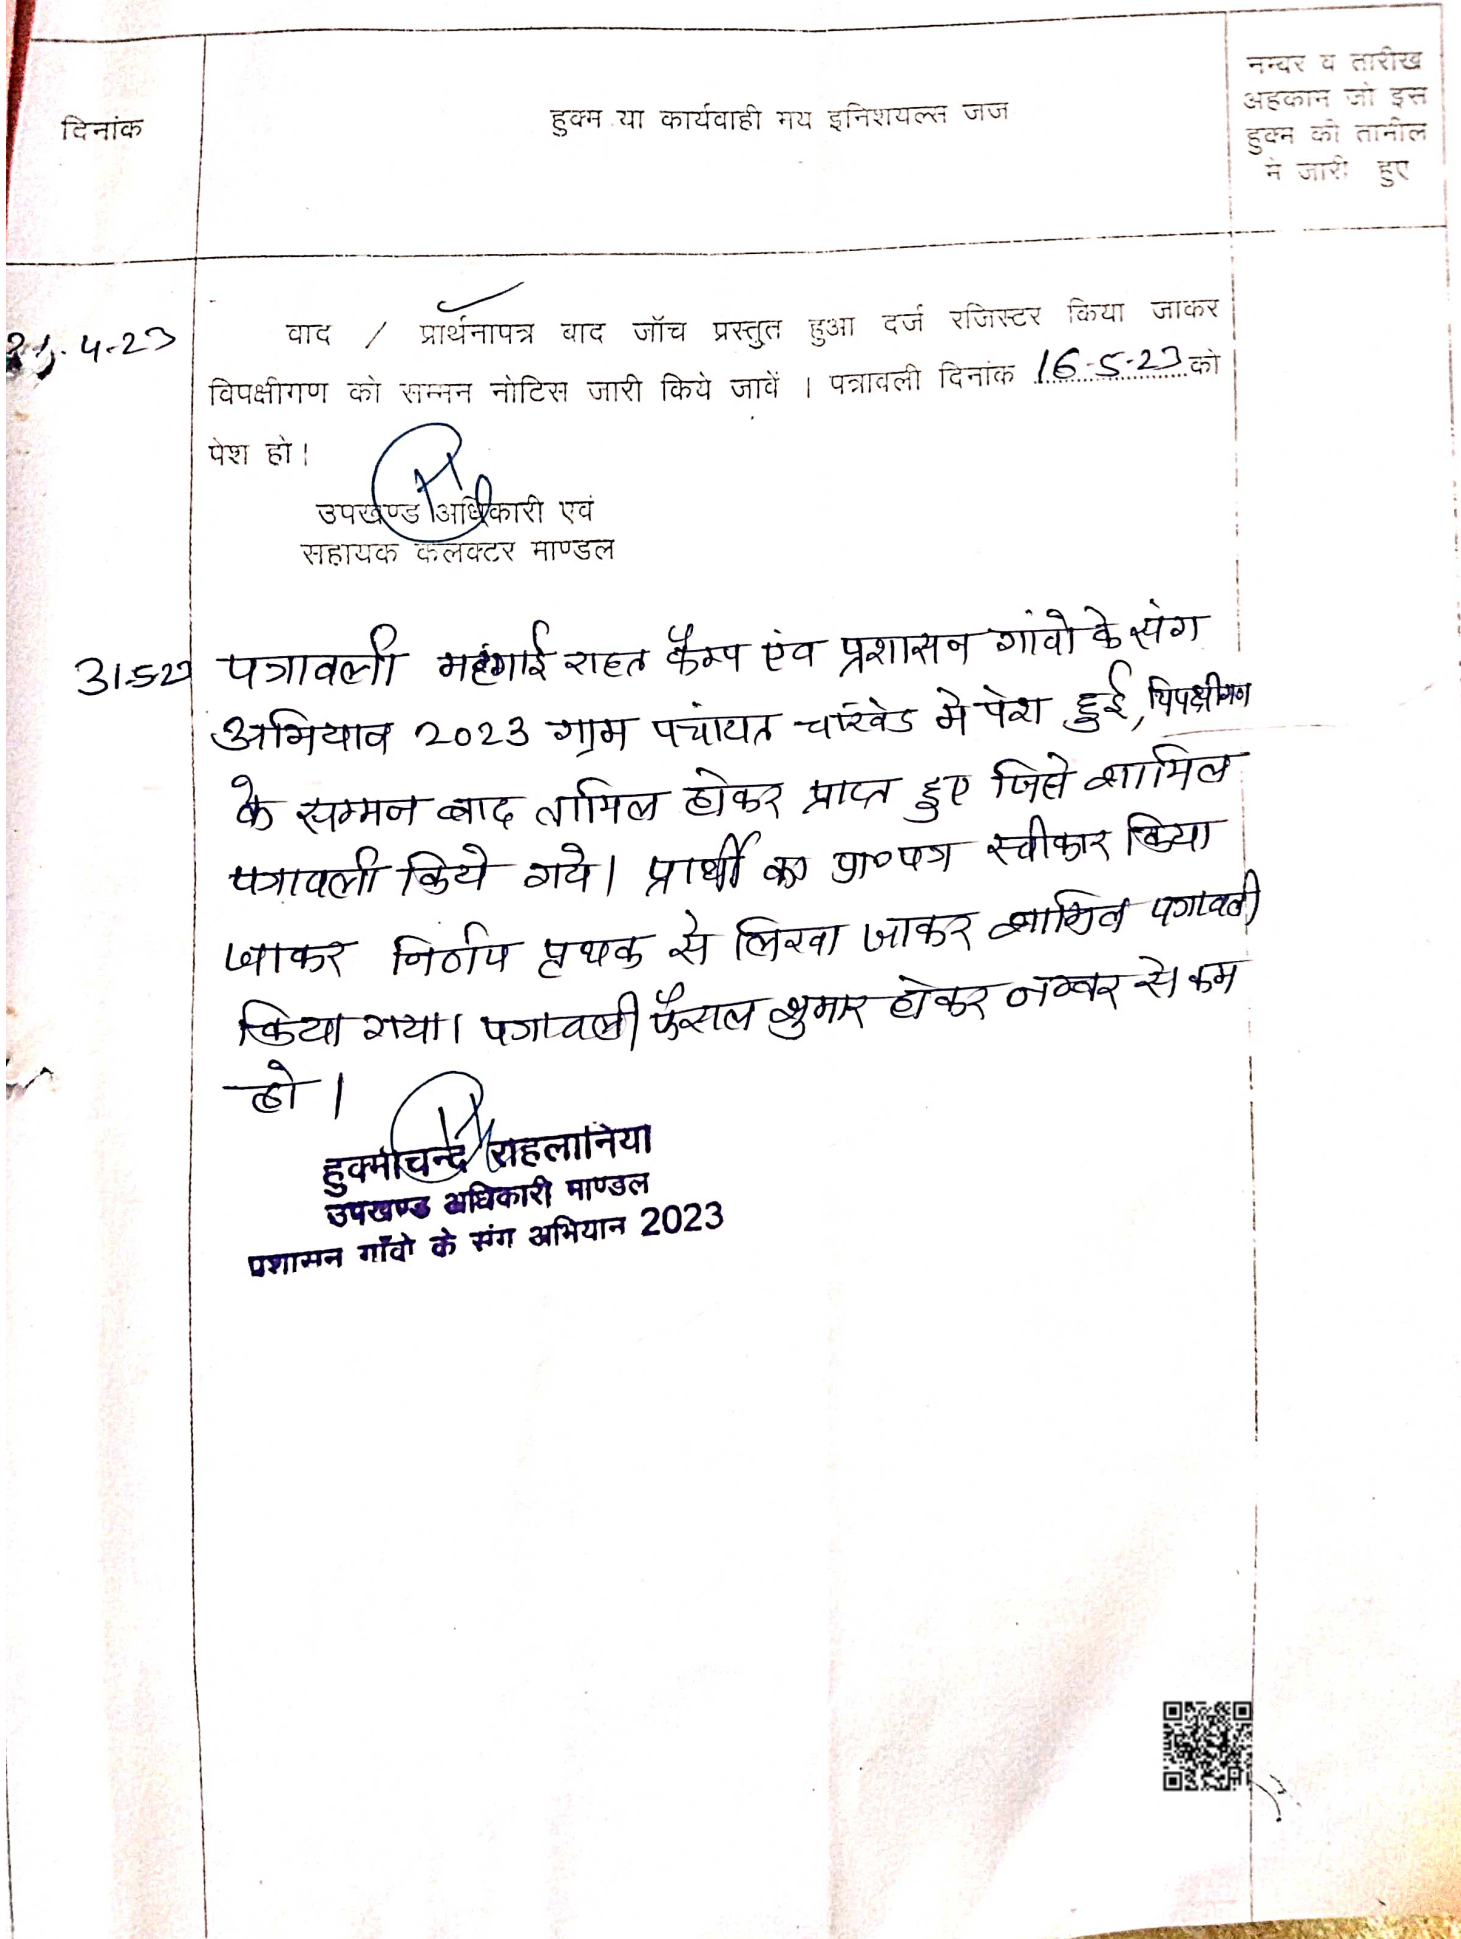 दिनांक
हुक्म या कार्यवाही मय इनिशयल्स जज
नम्बर व तारीख
अहकाम जो इस
हुक्म की तामील
में जारी हुए
4-23
वाद / प्रार्थनापत्र बाद जॉच प्रस्तुत हुआ दर्ज रजिस्टर किया जाकर
विपक्षीगण को सम्मन नोटिस जारी किये जावें । पत्रावली दिनांक 16-5-23 को
पेश हो।
उपखण्ड अधिकारी एवं
सहायक कलक्टर माण्डल
31-5-23 पत्रावली महंगाई राहत कैम्प एंव प्रशासन गांवो के संग
अभियान 2023 ग्राम पचांयत में पेश हुई, विपक्षीगण
के सम्मन बाद तामिल होकर प्राप्त हुए जिसे शामिल
पत्रावली किये गये। प्रार्थी का प्रा०पत्र स्वीकार किया
जाकर निर्णय पृथक से लिखा जाकर शामिल पत्रावली
किया गया। पत्रावली फैसल शुमार होकर नम्बर से कम
हो।
हुक्मीचन्द रोहलानिया
उपखण्ड अधिकारी माण्डल
प्रशासन गाँवो के संग अभियान 2023